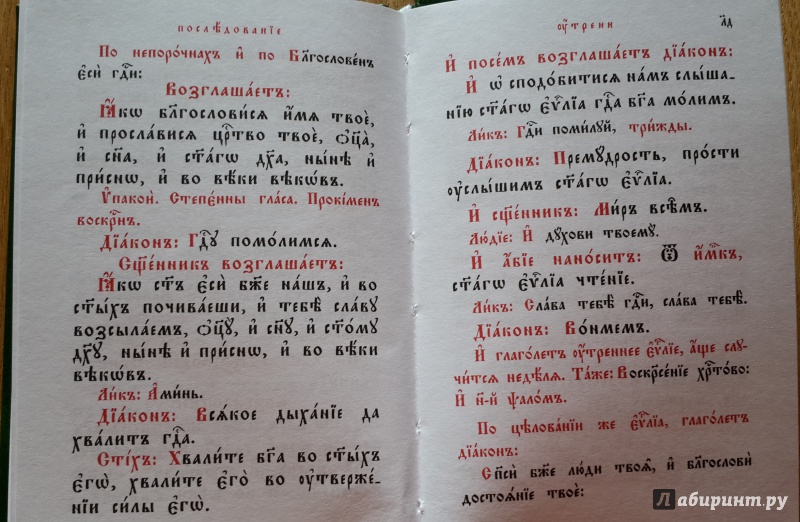 послѣдованїе
По непоро́чнахъ и҆ по Бл҃гослове́нъ
є҆сѝ гдⷭ҇и:
Возглаша́етъ:
Ꙗ҆́кѡ бл҃гослови́сѧ и҆́мѧ твоѐ,
и҆ просла́висѧ црⷭ҇тво твоѐ, ѻ҆ц҃а̀,
и҆ сн҃а, и҆ ст҃а́гѡ дх҃а, ны́нѣ и҆
при́снѡ, и҆ во вѣ́ки вѣкѡ́въ.
Ѵ҆пакоѝ. Степе́нны гла́са. Проки́менъ
воскрⷭ҇нъ.
Дїа́конъ: Гдⷭ҇ꙋ помо́лимсѧ.
Сщ҃е́нникъ возглаша́етъ:
Ꙗ҆́кѡ ст҃ъ є҆сѝ бж҃е на́шъ, и҆ во
ст҃ы́хъ почива́еши, и҆ тебѣ̀ сла́вꙋ
возсыла́емъ, ѻ҆ц҃ꙋ̀, и҆ сн҃ꙋ, и҆ ст҃о́мꙋ
дх҃ꙋ, ны́нѣ и҆ при́снѡ, и҆ во вѣ́ки
вѣкѡ́въ.
Ли́къ: А҆ми́нь.
Дїа́конъ: Всѧ́кое дыха́нїе да
хва́литъ гдⷭ҇а.
Сті́хъ: Хвали́те бг҃а во ст҃ы́хъ
є҆гѡ̀, хвали́те є҆го̀ во ѹ҆тверже́-
нїи си́лы є҆гѡ̀.
ѹ҆́трени
л҃д
И҆ посе́мъ возглаша́етъ дїа́конъ:
И҆ ѡ҆ сподо́битисѧ на́мъ слы́ша-
нїю ст҃а́гѡ є҆ѵⷢ҇лїа гдⷭ҇а бг҃а мо́лимъ.
Ли́къ: Гдⷭ҇и поми́лꙋй, три́жды.
Дїа́конъ: Премꙋ́дрость, про́сти
ѹ҆слы́шимъ ст҃а́гѡ є҆ѵⷢ҇лїа.
И҆ сщ҃е́нникъ: Ми́ръ всѣ̑мъ.
Лю́дїе: И҆ дꙋ́хови твоемꙋ̀.
И҆ а҆́бїе нано́ситъ: Ѿ и҆́мⷬ҇къ,
ст҃а́гѡ є҆ѵⷢ҇лїа чте́нїе.
Ли́къ: Сла́ва тебѣ̀ гдⷭ҇и, сла́ва тебѣ̀.
Дїа́конъ: Во́нмемъ.
И҆ глаго́летъ ѹ҆́треннее є҆ѵⷢ҇лїе, а҆́ще слꙋ-
чи́тсѧ недѣ́лѧ. Та́же: Воскрⷭ҇е́нїе хрⷭ҇то́во:
И҆ н҃-й ѱало́мъ.
По цѣлова́нїи же є҆ѵⷢ҇лїа, глаго́летъ
дїа́конъ:
Сп҃сѝ бж҃е лю́ди твоѧ̑, и҆ бл҃гословѝ
достоѧ́нїе твоѐ:
Лабиринт.ру